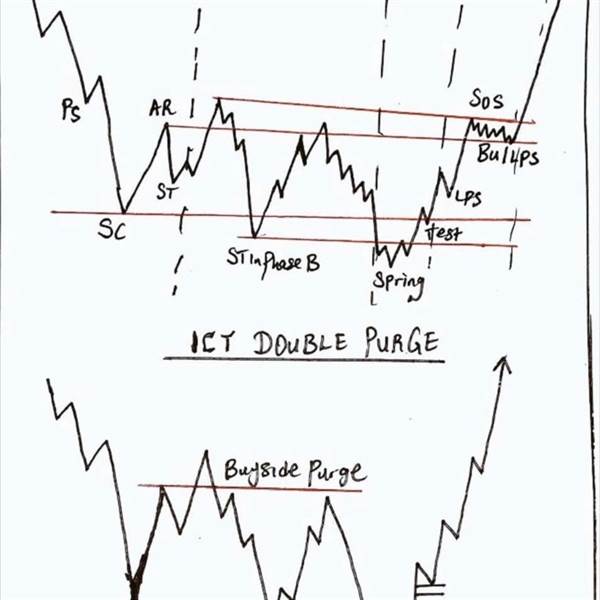 PS
AR
SOS
BU/LPS
ST
LPS
SC
test
ST in Phase B
Spring
ICT DOUBLE PURGE
Buyside Purge